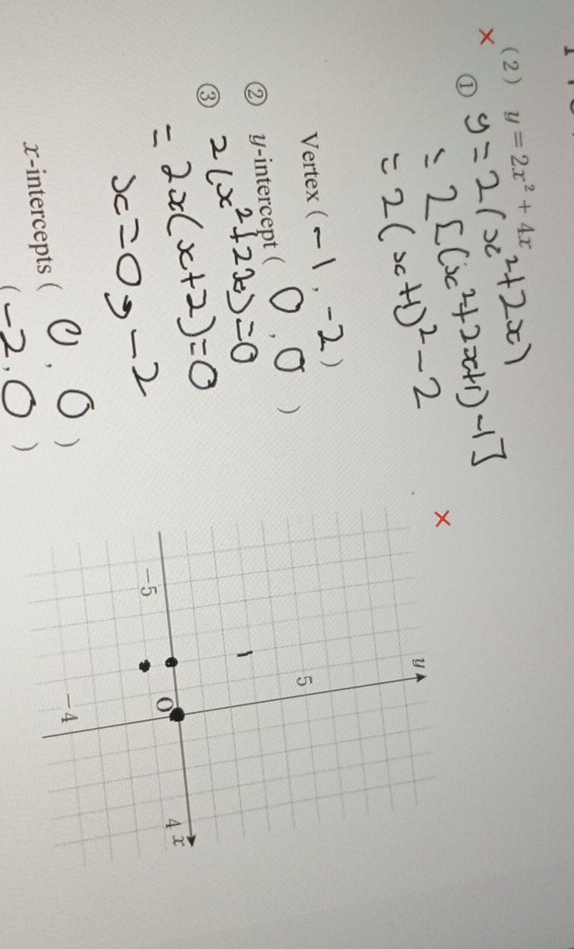 (2) y = 2x² + 4x
① y = 2(x²+2x)
= 2[(x²+2x+1)-1]
= 2(x+1)²-2
Vertex (-1, -2)
② y-intercept (0, 0)
③ 2(x²+2x)=0
= 2x(x+2)=0
x=0, -2
x-intercepts (0, 0)
(-2, 0)
y
5
-5
O
4
x
-4